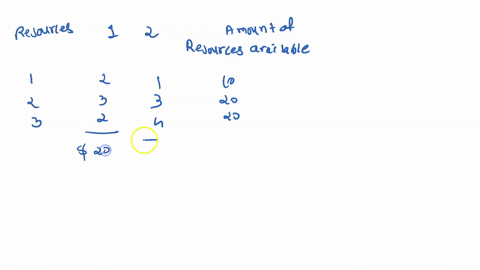 Resources 1 2 Amount of
Resources available
1 2 1 10
2 3 3 20
3 2 4 20
$ 20